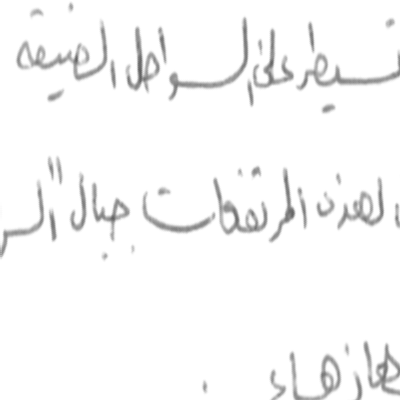 تسيطر على السواحل الضيقة
لهذه المرتفعات جبال "السر